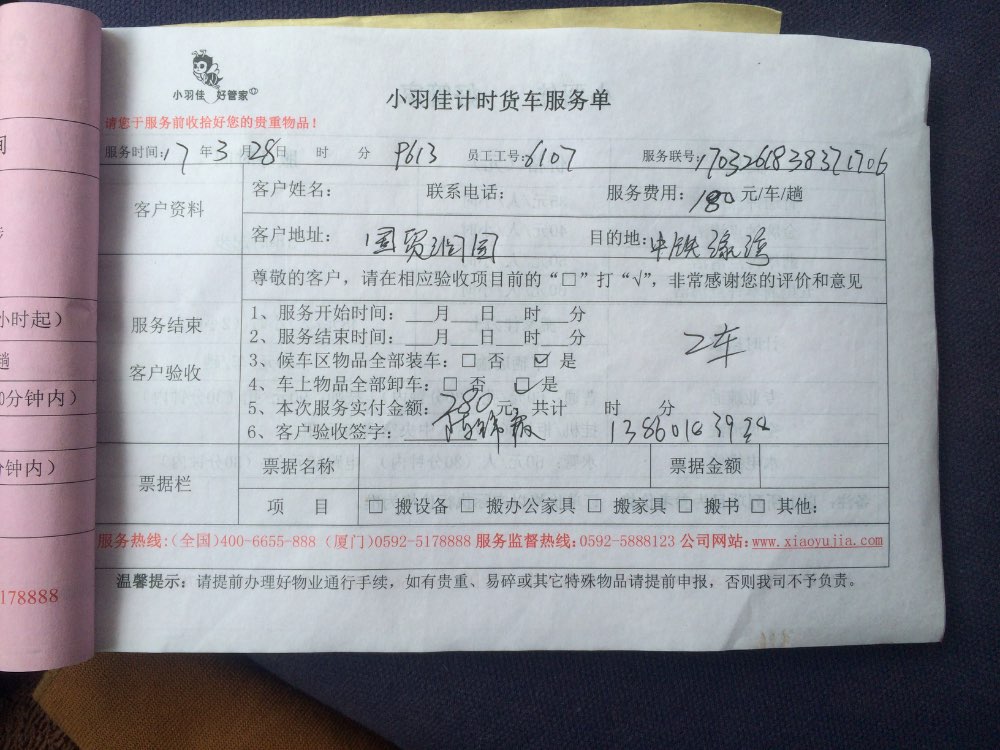 小羽佳 好管家
小羽佳计时货车服务单
请您于服务前收拾好您的贵重物品！
服务时间：17年3月28日 时 分 P613 员工工号：6107 服务联号：
客户资料
客户姓名： 联系电话： 服务费用：180元/车/趟
客户地址：国贸润园 目的地：中铁 湾
尊敬的客户，请在相应验收项目前的“□”打“√”，非常感谢您的评价和意见
服务结束
客户验收
1、服务开始时间：___月___日___时___分
2、服务结束时间：___月___日___时___分
2车
3、候车区物品全部装车：□ 否 ☑ 是
4、车上物品全部卸车：□ 否 ☑ 是
5、本次服务实付金额：280元 共计 时 分
6、客户验收签字：陈
票据栏
票据名称 票据金额
项 目 □ 搬设备 □ 搬办公家具 □ 搬家具 □ 搬书 □ 其他：
服务热线：(全国)400-6655-888 (厦门)0592-5178888 服务监督热线：0592-5888123 公司网站：www.xiaoyujia.com
温馨提示：请提前办理好物业通行手续，如有贵重、易碎或其它特殊物品请提前申报，否则我司不予负责。
小时起）
趟
0分钟内）
分钟内）
178888